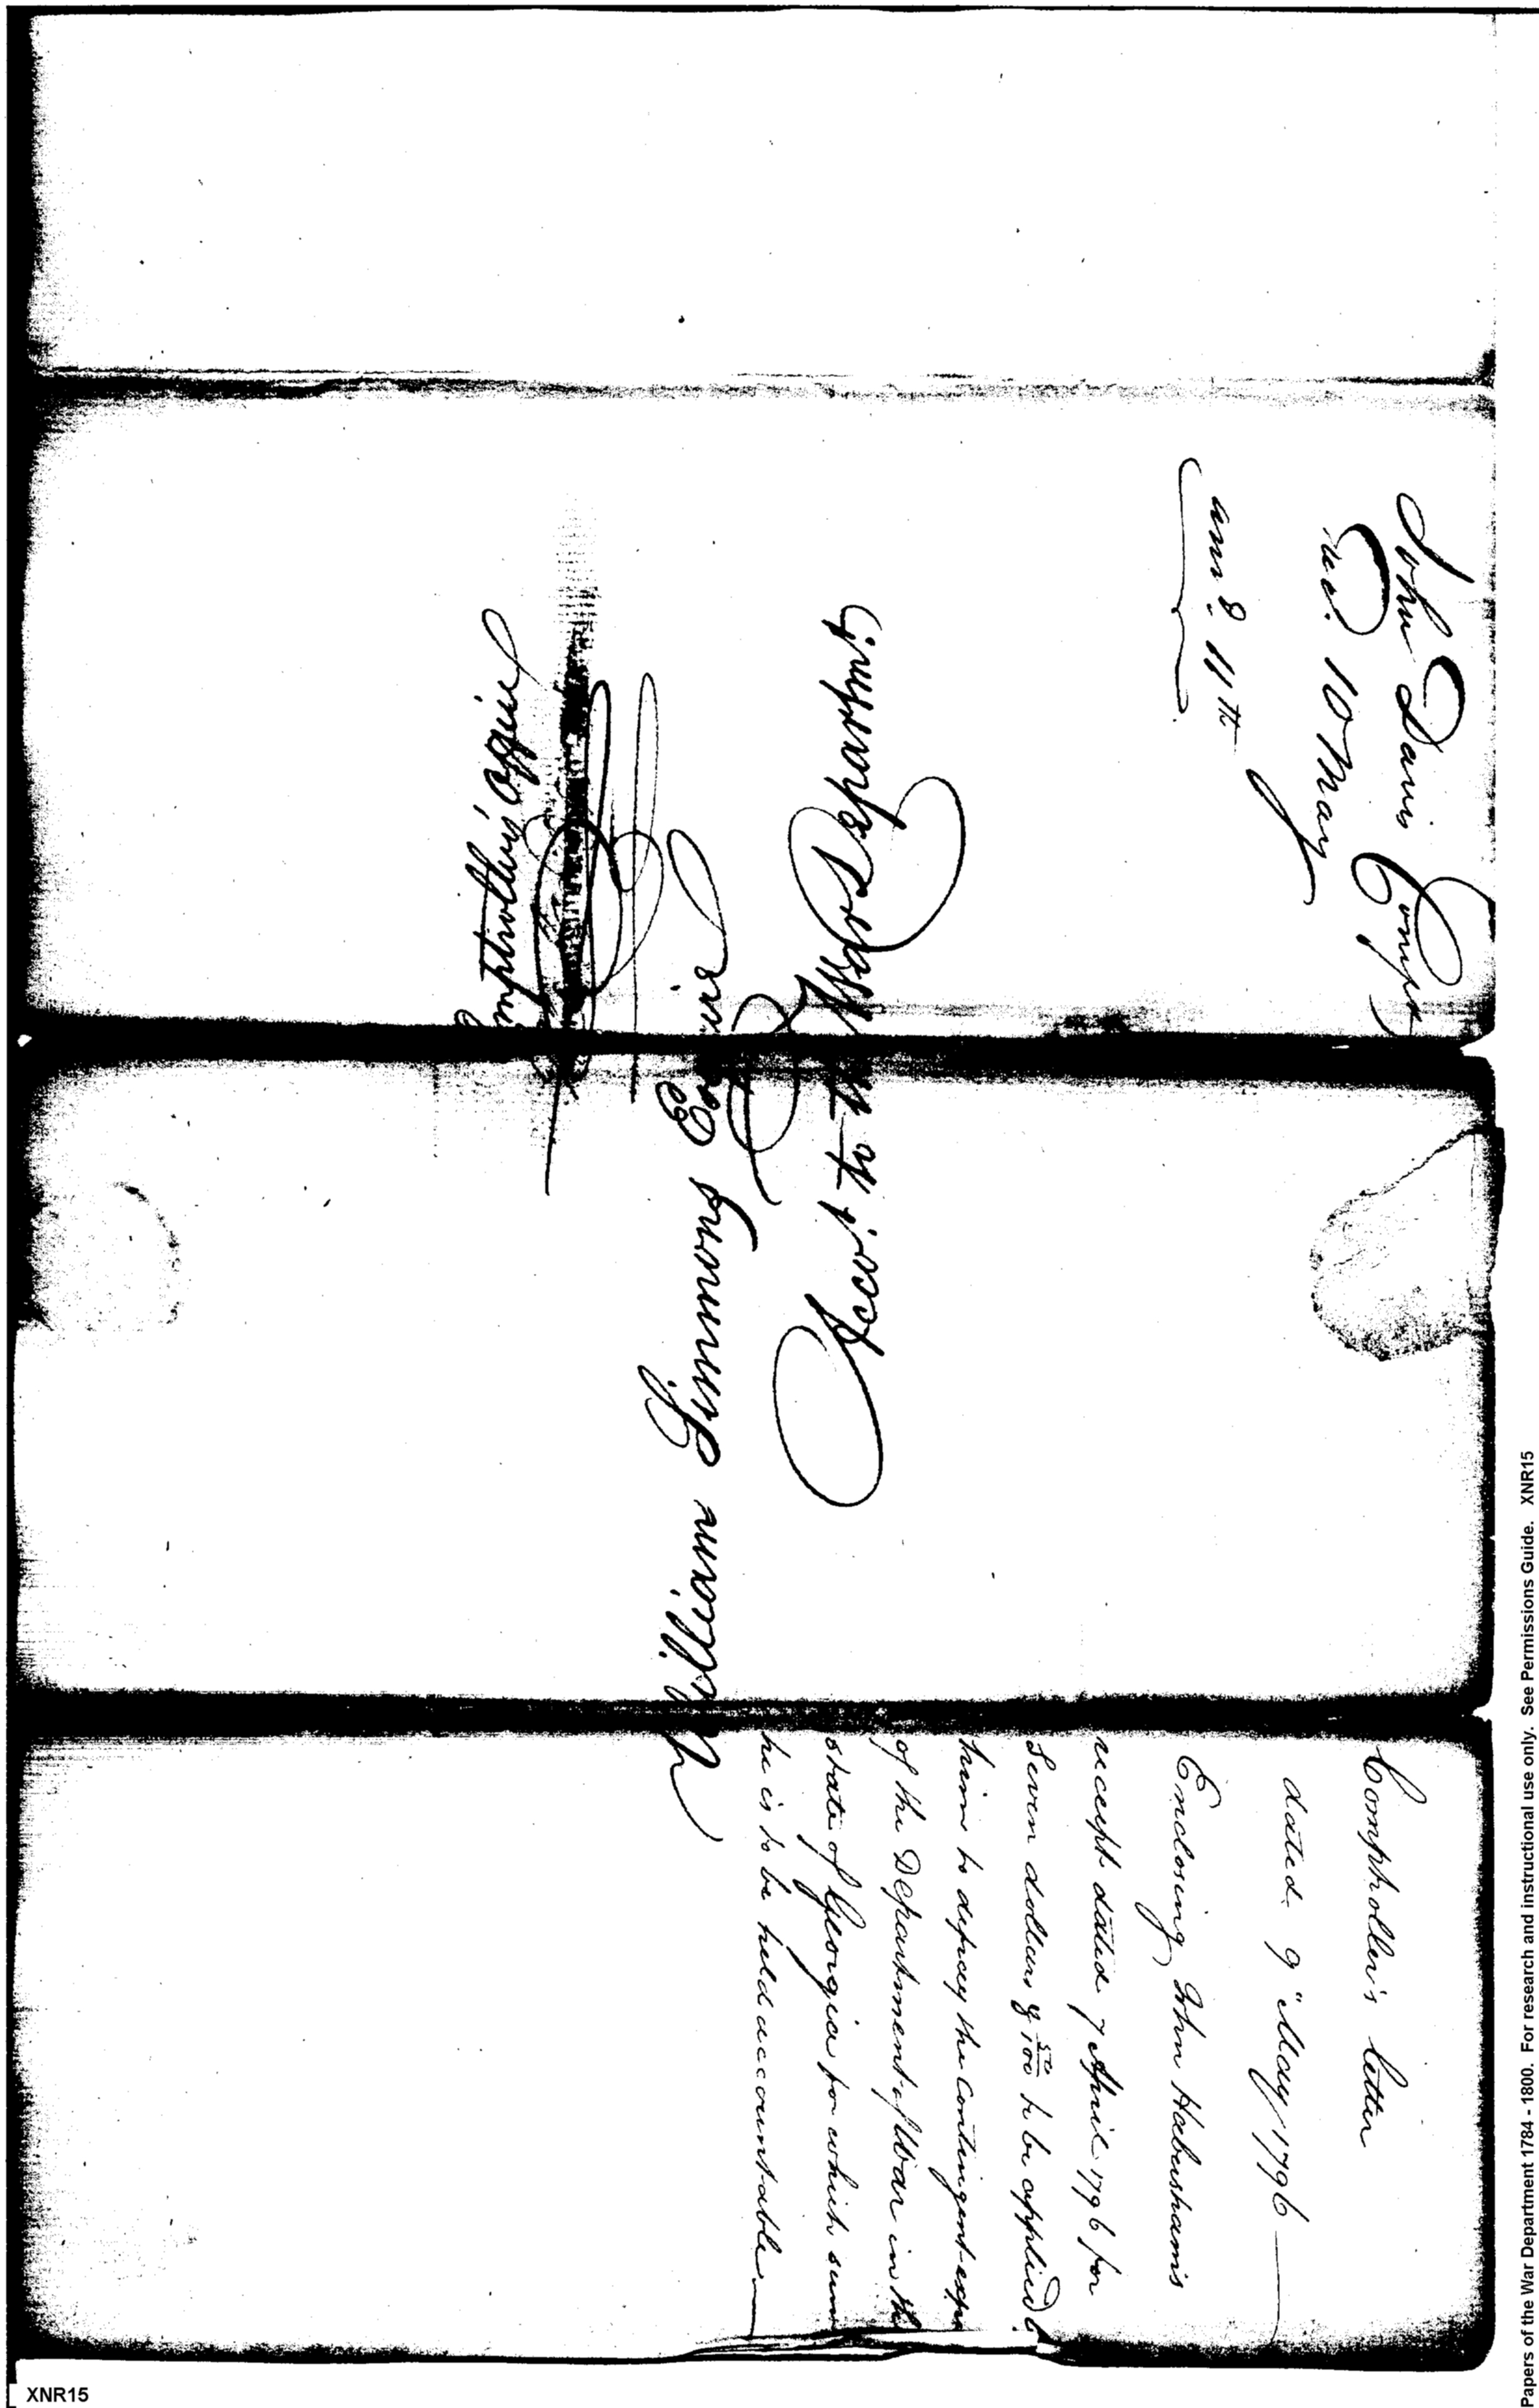 John Davis Compt
recd. 10 May
ansd. 11th
William Simmons Esquire
Accot. of the War Department
Public Service
Comptroller's Office
Comptroller's letter
dated 9" May 1796
Enclosing John Habersham's
receipt dated 7 April 1796 for
Seven dollars & 50/100 to be applied b
him to defray the Contingent expe
of the Department of War in the
state of Georgia for which sum
he is to be held accountable
XNR15
Papers of the War Department 1784 - 1800. For research and instructional use only. See Permissions Guide. XNR15